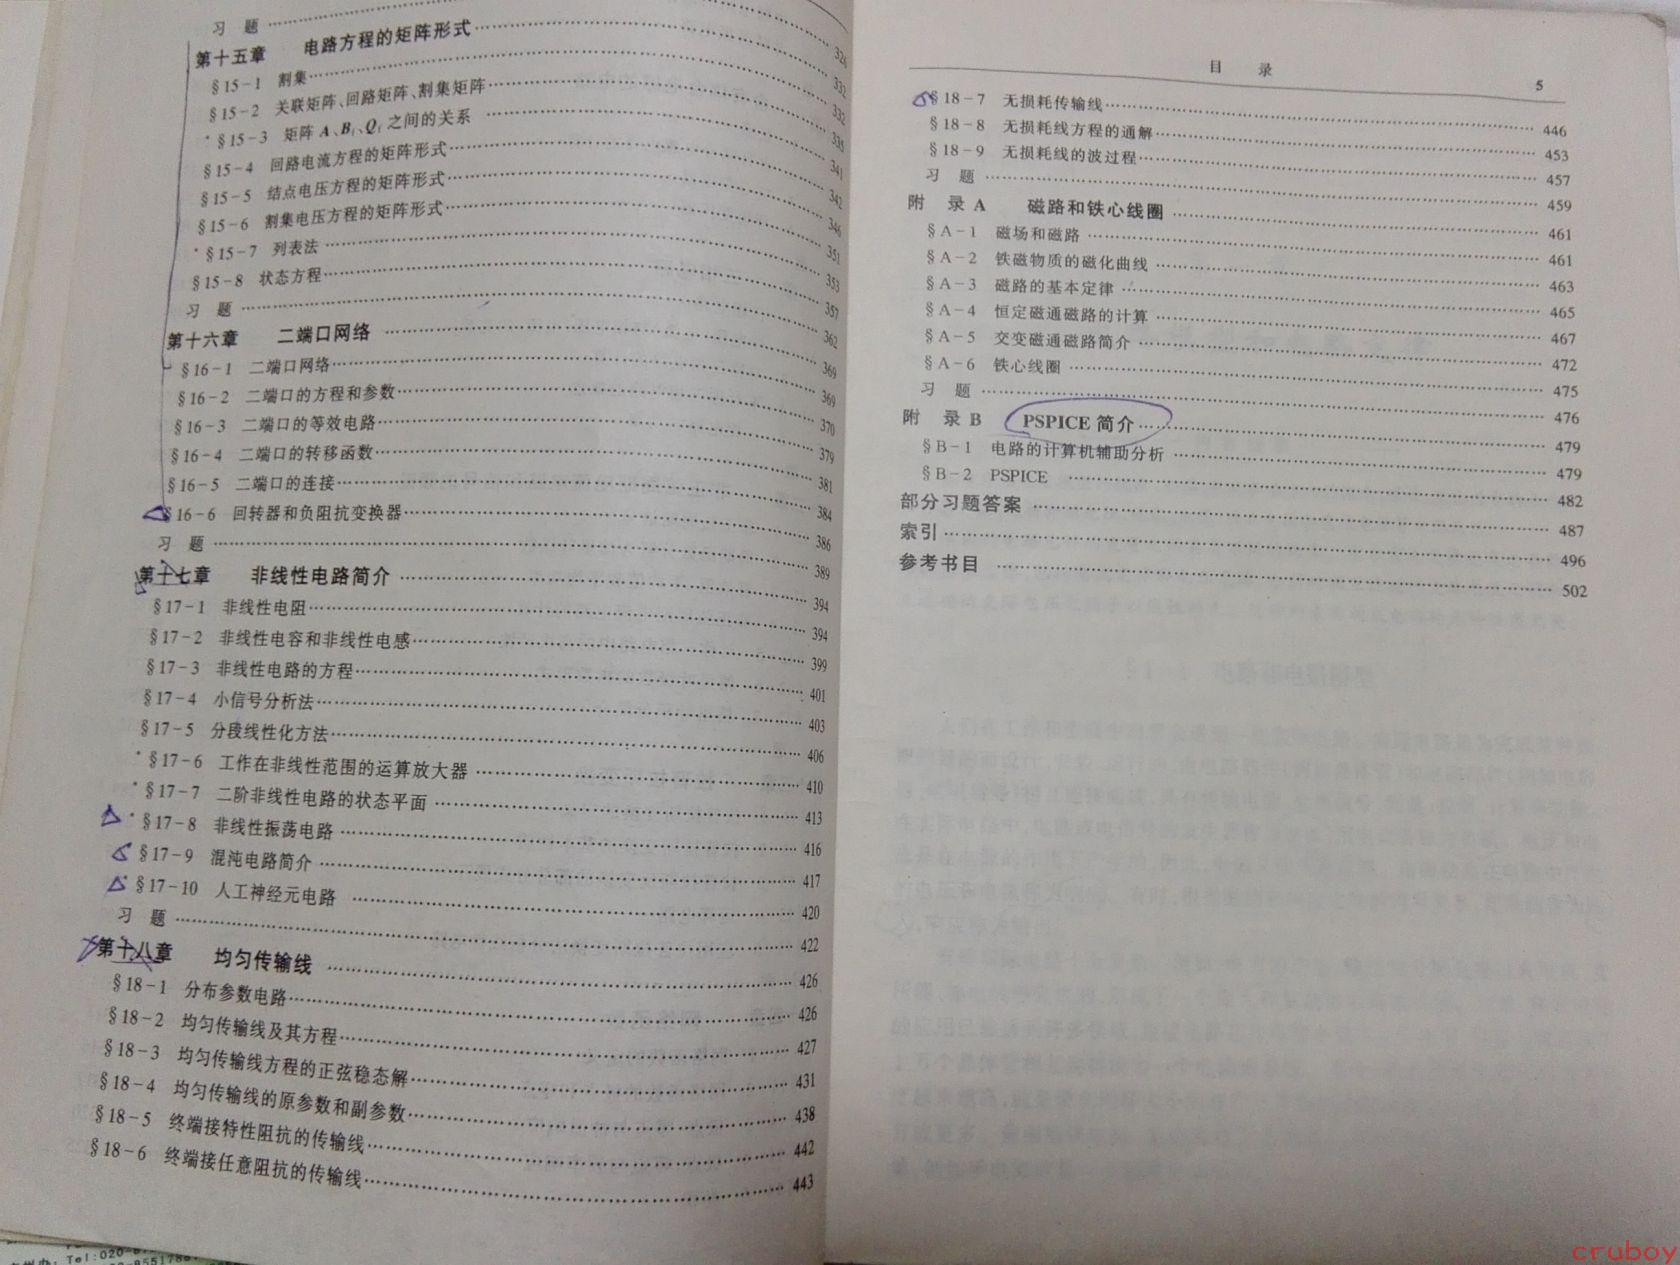 习 题 …… 326
第十五章 电路方程的矩阵形式 …… 332
§15-1 割集 …… 332
§15-2 关联矩阵、回路矩阵、割集矩阵 …… 335
*§15-3 矩阵 A、Bf、Qf 之间的关系 …… 341
§15-4 回路电流方程的矩阵形式 …… 342
§15-5 结点电压方程的矩阵形式 …… 346
§15-6 割集电压方程的矩阵形式 …… 351
*§15-7 列表法 …… 353
§15-8 状态方程 …… 357
习 题 …… 362
第十六章 二端口网络 …… 369
§16-1 二端口网络 …… 369
§16-2 二端口的方程和参数 …… 370
§16-3 二端口的等效电路 …… 379
§16-4 二端口的转移函数 …… 381
§16-5 二端口的连接 …… 384
§16-6 回转器和负阻抗变换器 …… 386
习 题 …… 389
第十七章 非线性电路简介 …… 394
§17-1 非线性电阻 …… 394
§17-2 非线性电容和非线性电感 …… 399
§17-3 非线性电路的方程 …… 401
§17-4 小信号分析法 …… 403
§17-5 分段线性化方法 …… 406
*§17-6 工作在非线性范围的运算放大器 …… 410
*§17-7 二阶非线性电路的状态平面 …… 413
*§17-8 非线性振荡电路 …… 416
*§17-9 混沌电路简介 …… 417
*§17-10 人工神经元电路 …… 420
习 题 …… 422
第十八章 均匀传输线 …… 426
§18-1 分布参数电路 …… 426
§18-2 均匀传输线及其方程 …… 427
§18-3 均匀传输线方程的正弦稳态解 …… 431
§18-4 均匀传输线的原参数和副参数 …… 438
§18-5 终端接特性阻抗的传输线 …… 442
§18-6 终端接任意阻抗的传输线 …… 443
目 录 5
§18-7 无损耗传输线 …… 446
§18-8 无损耗线方程的通解 …… 453
§18-9 无损耗线的波过程 …… 457
习 题 …… 459
附 录 A 磁路和铁心线圈 …… 461
§A-1 磁场和磁路 …… 461
§A-2 铁磁物质的磁化曲线 …… 463
§A-3 磁路的基本定律 …… 465
§A-4 恒定磁通磁路的计算 …… 467
§A-5 交变磁通磁路简介 …… 472
§A-6 铁心线圈 …… 475
习 题 …… 476
附 录 B PSPICE 简介 …… 479
§B-1 电路的计算机辅助分析 …… 479
§B-2 PSPICE …… 482
部分习题答案 …… 487
索引 …… 496
参考书目 …… 502
Tel:020-8
cruboy